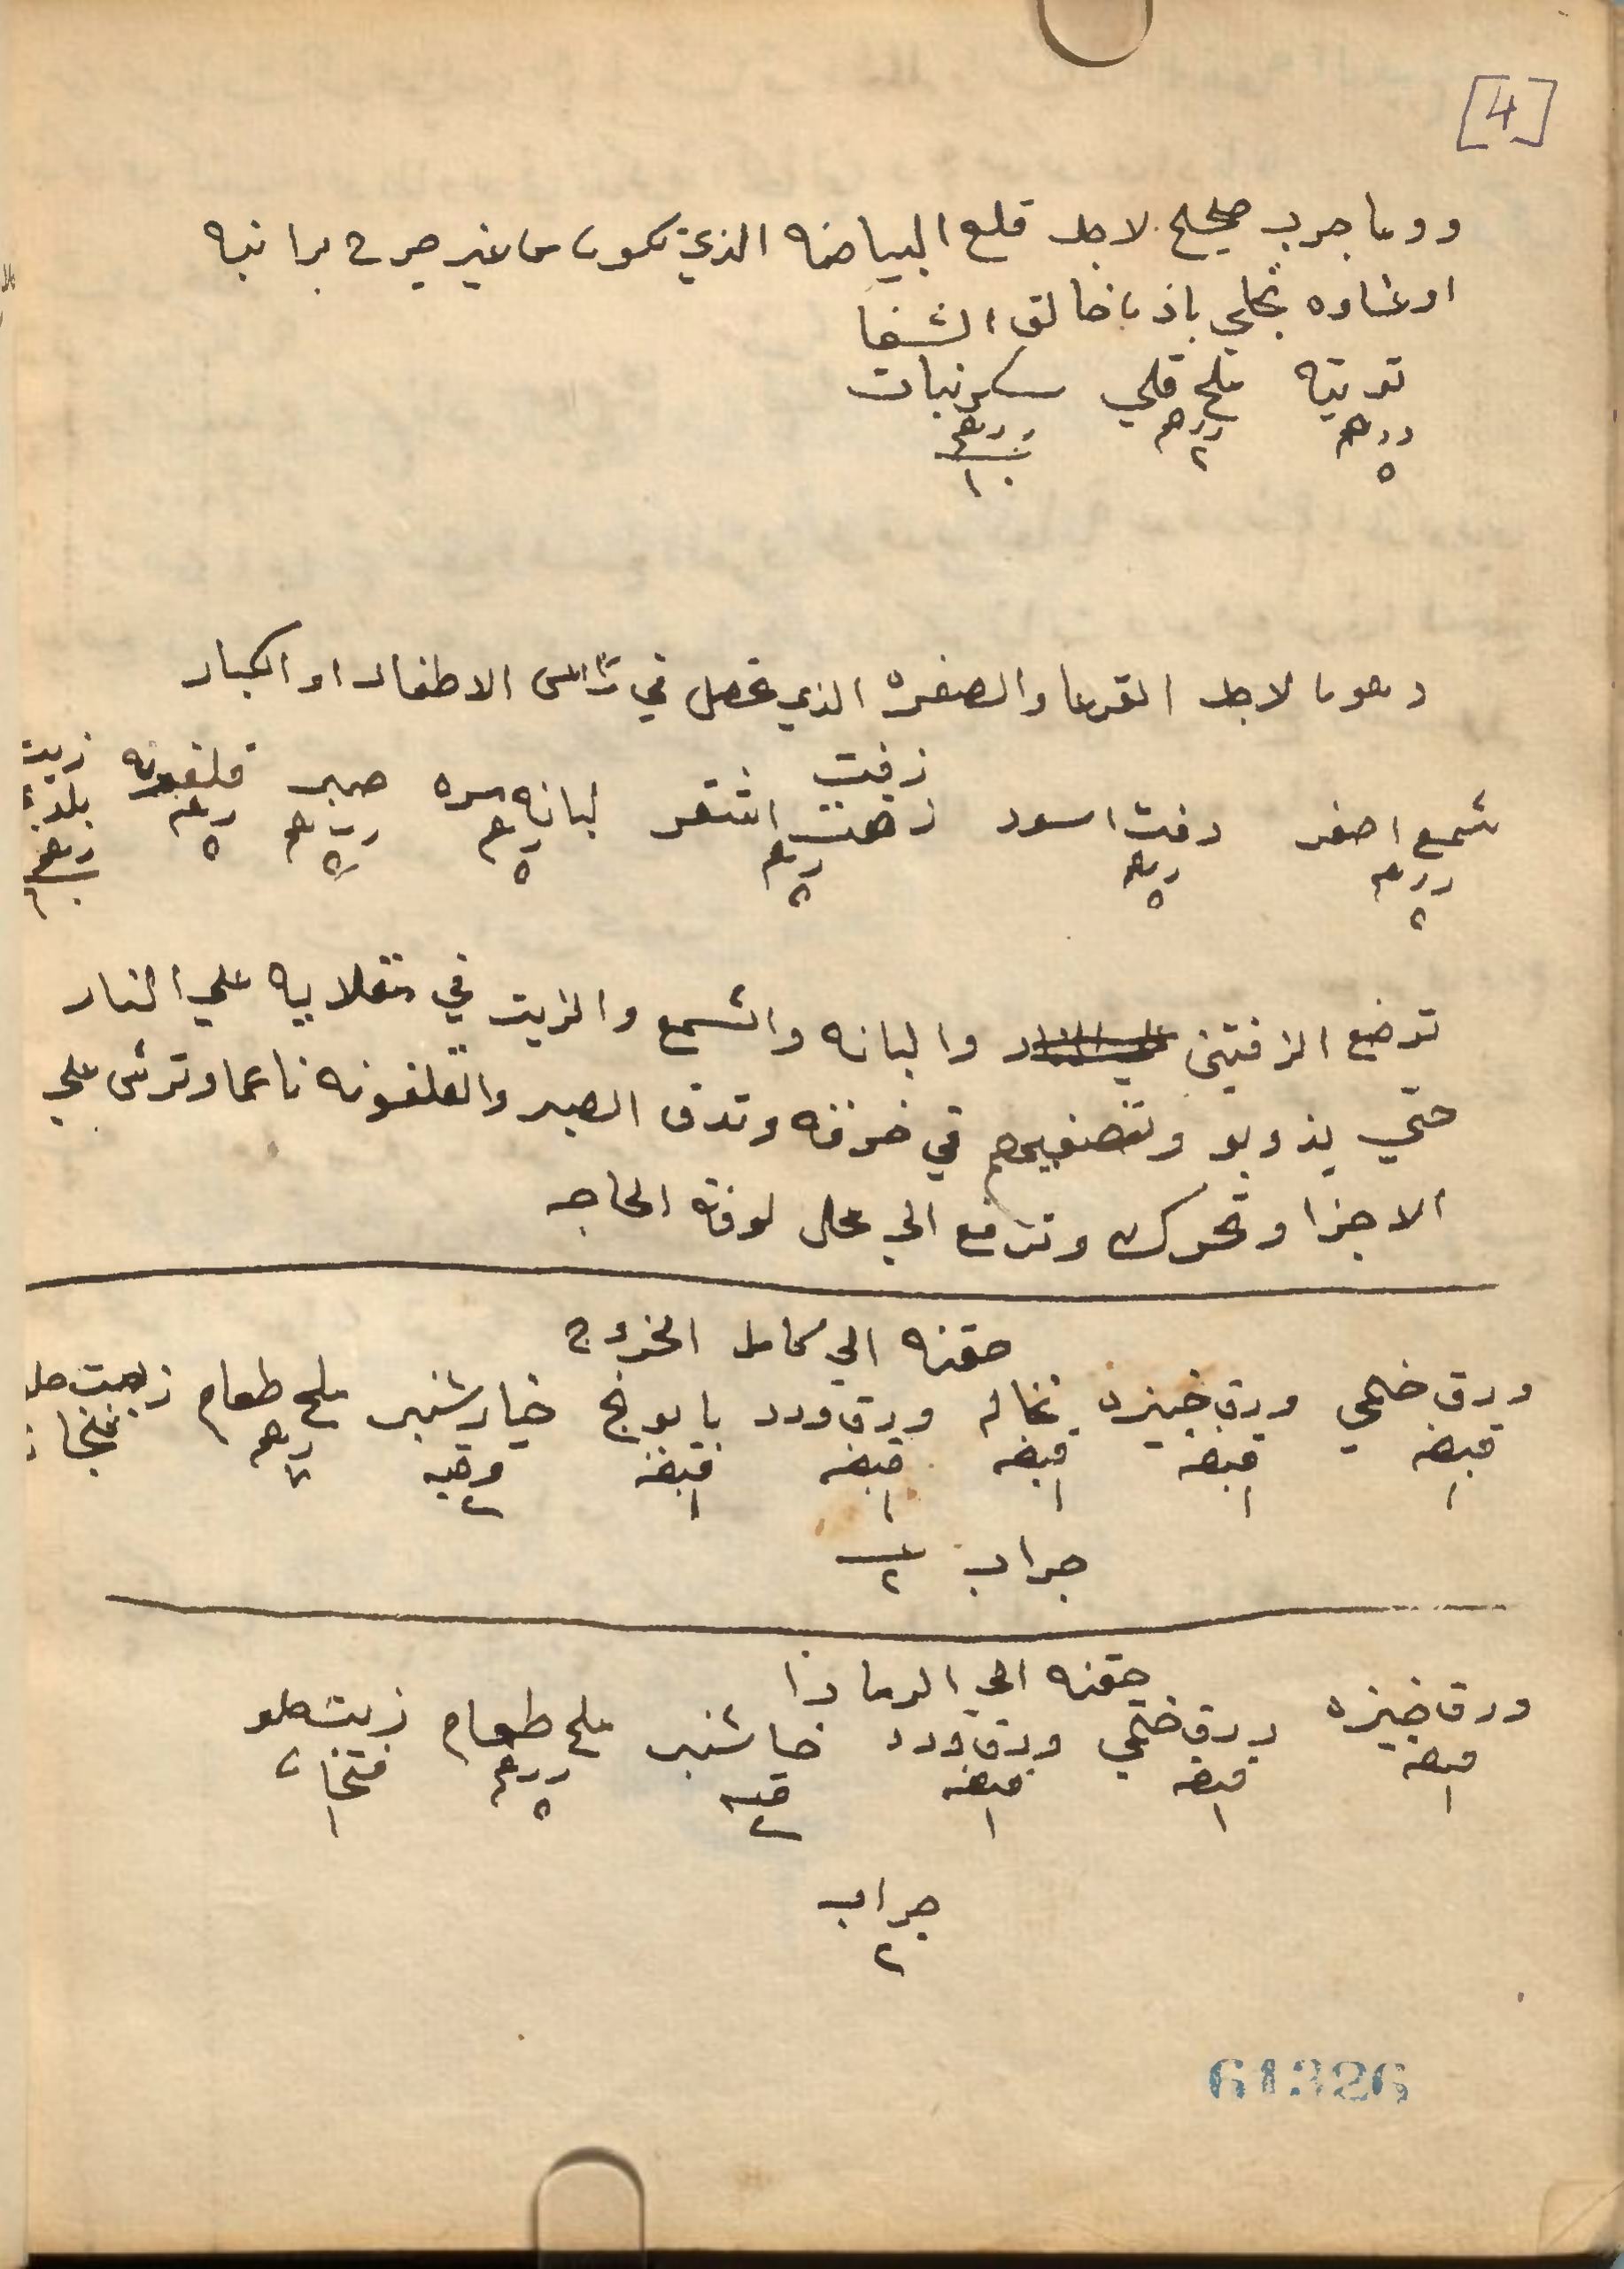 [4]
دوما جرب صحيح لاجل قلع البياضه الذي تكون من غير جرح برانيه
او غشاوه تجلي باذن خالق الشفا
توتيه ملح قلي سكر نبات
درهم درهم درهم
٥ ٢ ١٠
دهونا لاجل القرعا والصفره الذي تحصل في راس الاطفال او الكبار
زفت
شمع اصفر زفت اسود زهت اشقر لبانه مره صبر قلفونه زيت بلدي
درهم درهم درهم درهم درهم درهم درهم
٥ ٥ ٥ ٥ ٥ ٥
توضع الزفتين والبانه والشمع والزيت في مقلايه علي النار
حتي يذوبو وتصفيهم في خرقه وتدق الصبر والقلفونه ناعما وترش علي
الاجزا وتحرك وترفع الي محل لوقت الحاجه
حقنه الي كامل الخروج
ورق ختمي ورق خبيزه نخاله ورق ورد بابونج خيار شنبر ملح طعام زيت حلو
قبضه قبضه قبضه قبضه قبضه وقيه درهم فنجان
١ ١ ١ ١ ١ ٢
جراب ٢
حقنه الي الرمادا
ورق خبيزه ورق ختمي ورق ورد خاشنبر ملح طعام زيت حلو
قبضه قبضه قبضه قيه درهم فنجان
١ ١ ١ ٢ ٥ ١
جراب
٢
61326